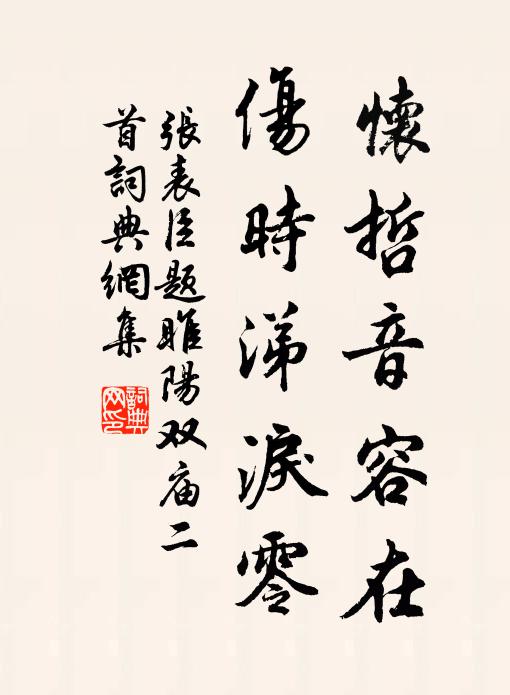 懷哲音容在
傷時涕淚零
張表臣題睢陽双庙二
首詞典網集
詞典
网印